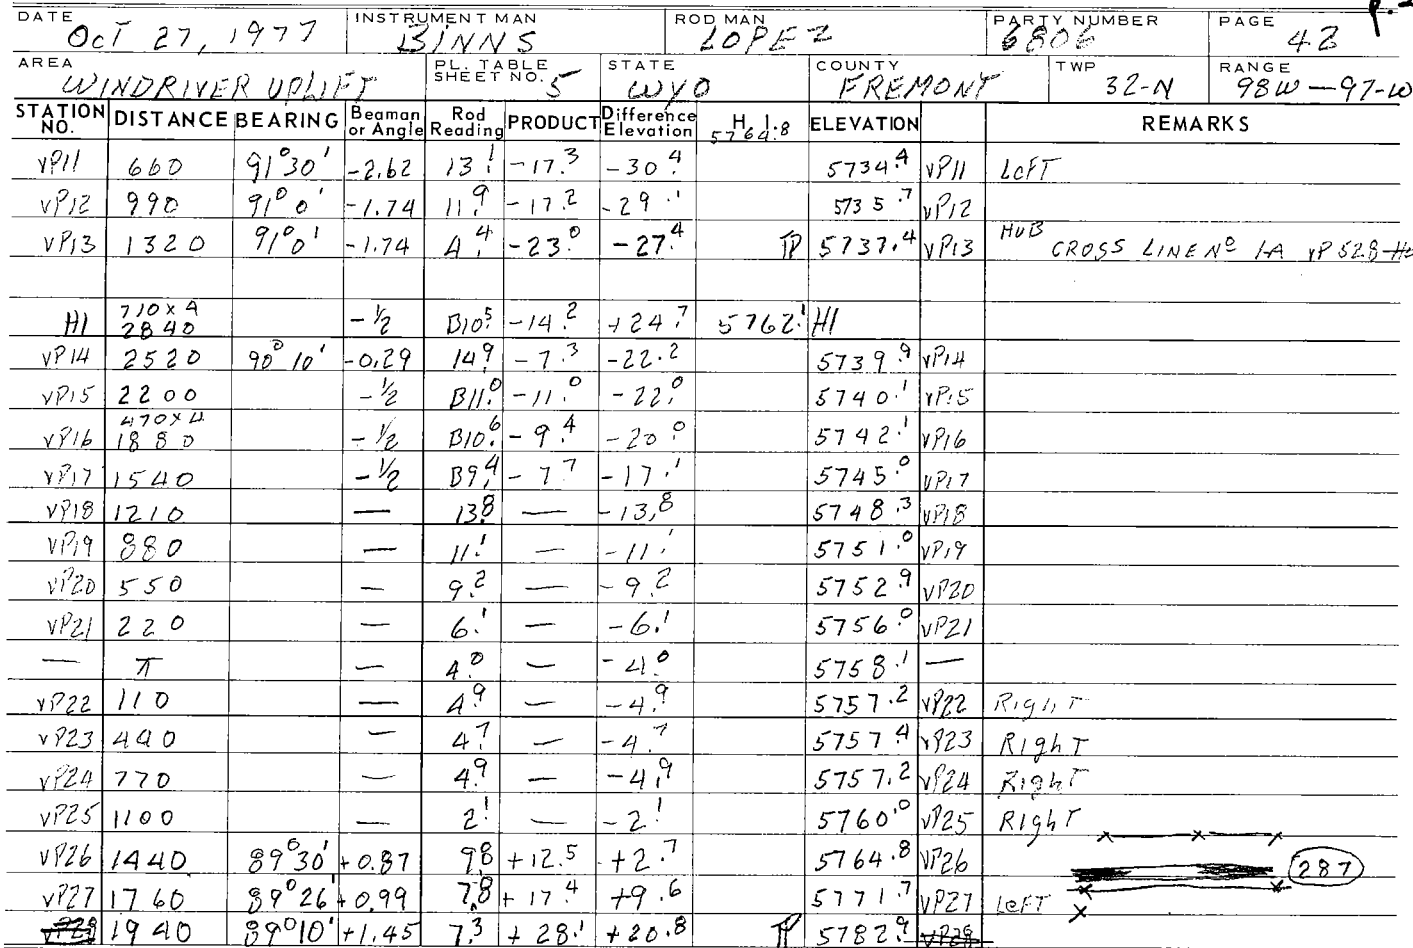 p.
DATE INSTRUMENT MAN ROD MAN PARTY NUMBER PAGE
OCT 27, 1977 BINNS LOPEZ 6806 42
AREA PL. TABLE SHEET NO. STATE COUNTY TWP RANGE
WINDRIVER UPLIFT 5 WYO FREMONT 32-N 98W-97-W
STATION NO. DISTANCE BEARING Beaman or Angle Rod Reading PRODUCT Difference Elevation H.I. 5764.8 ELEVATION REMARKS
VP11 660 91°30' -2.62 13.1 -17.3 -30.4 5734.4 VP11 LEFT
VP12 990 91°0' -1.74 11.9 -17.2 -29.1 5735.7 VP12
VP13 1320 91°0' -1.74 4.4 -23.0 -27.4 TP 5737.4 VP13 HUB CROSS LINE Nº 1A VP 528
710x4
HI 2840 -1/2 B10.5 -14.2 +24.7 5762.1 HI
VP14 2520 90°10' -0.29 14.9 -7.3 -22.2 5739.9 VP14
VP15 2200 -1/2 B11.0 -11.0 -22.0 5740.1 VP15
470x4
VP16 1880 -1/2 B10.6 -9.4 -20.0 5742.1 VP16
VP17 1540 -1/2 B9.4 -7.7 -17.1 5745.0 VP17
VP18 1210 — 13.8 — -13.8 5748.3 VP18
VP19 880 — 11.1 — -11.1 5751.0 VP19
VP20 550 — 9.2 — -9.2 5752.9 VP20
VP21 220 — 6.1 — -6.1 5756.0 VP21
— π — 4.0 — -4.0 5758.1 —
VP22 110 — 4.9 — -4.9 5757.2 VP22 Right
VP23 440 — 4.7 — -4.7 5757.4 VP23 Right
VP24 770 — 4.9 — -4.9 5757.2 VP24 Right
VP25 1100 — 2.1 — -2.1 5760.0 VP25 Right
VP26 1440 89°30' +0.87 9.8 +12.5 +2.7 5764.8 VP26
287
VP27 1760 89°26' +0.99 7.8 +17.4 +9.6 5771.7 VP27 LEFT
VP28 1940 89°10' +1.45 7.3 +28.1 +20.8 TP 5782.9 VP28